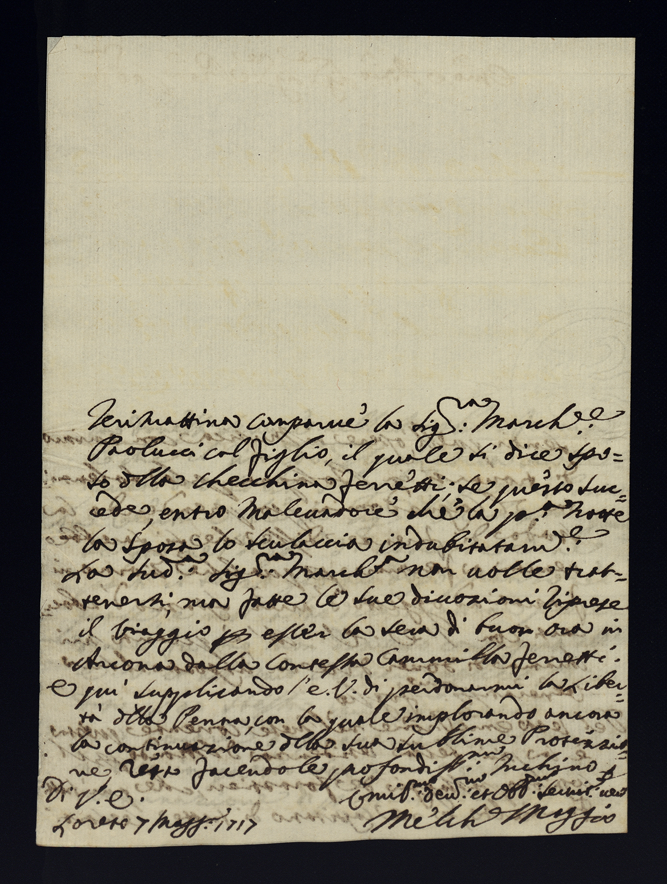 Ieri mattina comparve la Sig.ra March.e
Paolucci col figlio, il quale si dice spo=
so della Checchina Ferretti; se questo suc=
cede, entro Malevadore che la p.a notte
la sposa lo sculaccia indubitatam.e
La sud.a Sig.ra March.a non volle trat=
tenersi, ma fatte le sue divozioni riprese
il viaggio p esser la sera di buon ora in
Ancona dalla Contessa Cammilla Ferretti.
e qui supplicando l'e.V. di perdonarmi la liber=
tà della Penna, con la quale implorando ancora
la continuazione della sua sublime Protezzio=
ne resto facendole profondiss.mo inchino
Di V.e.
Loreto 7 Magg.o 1717